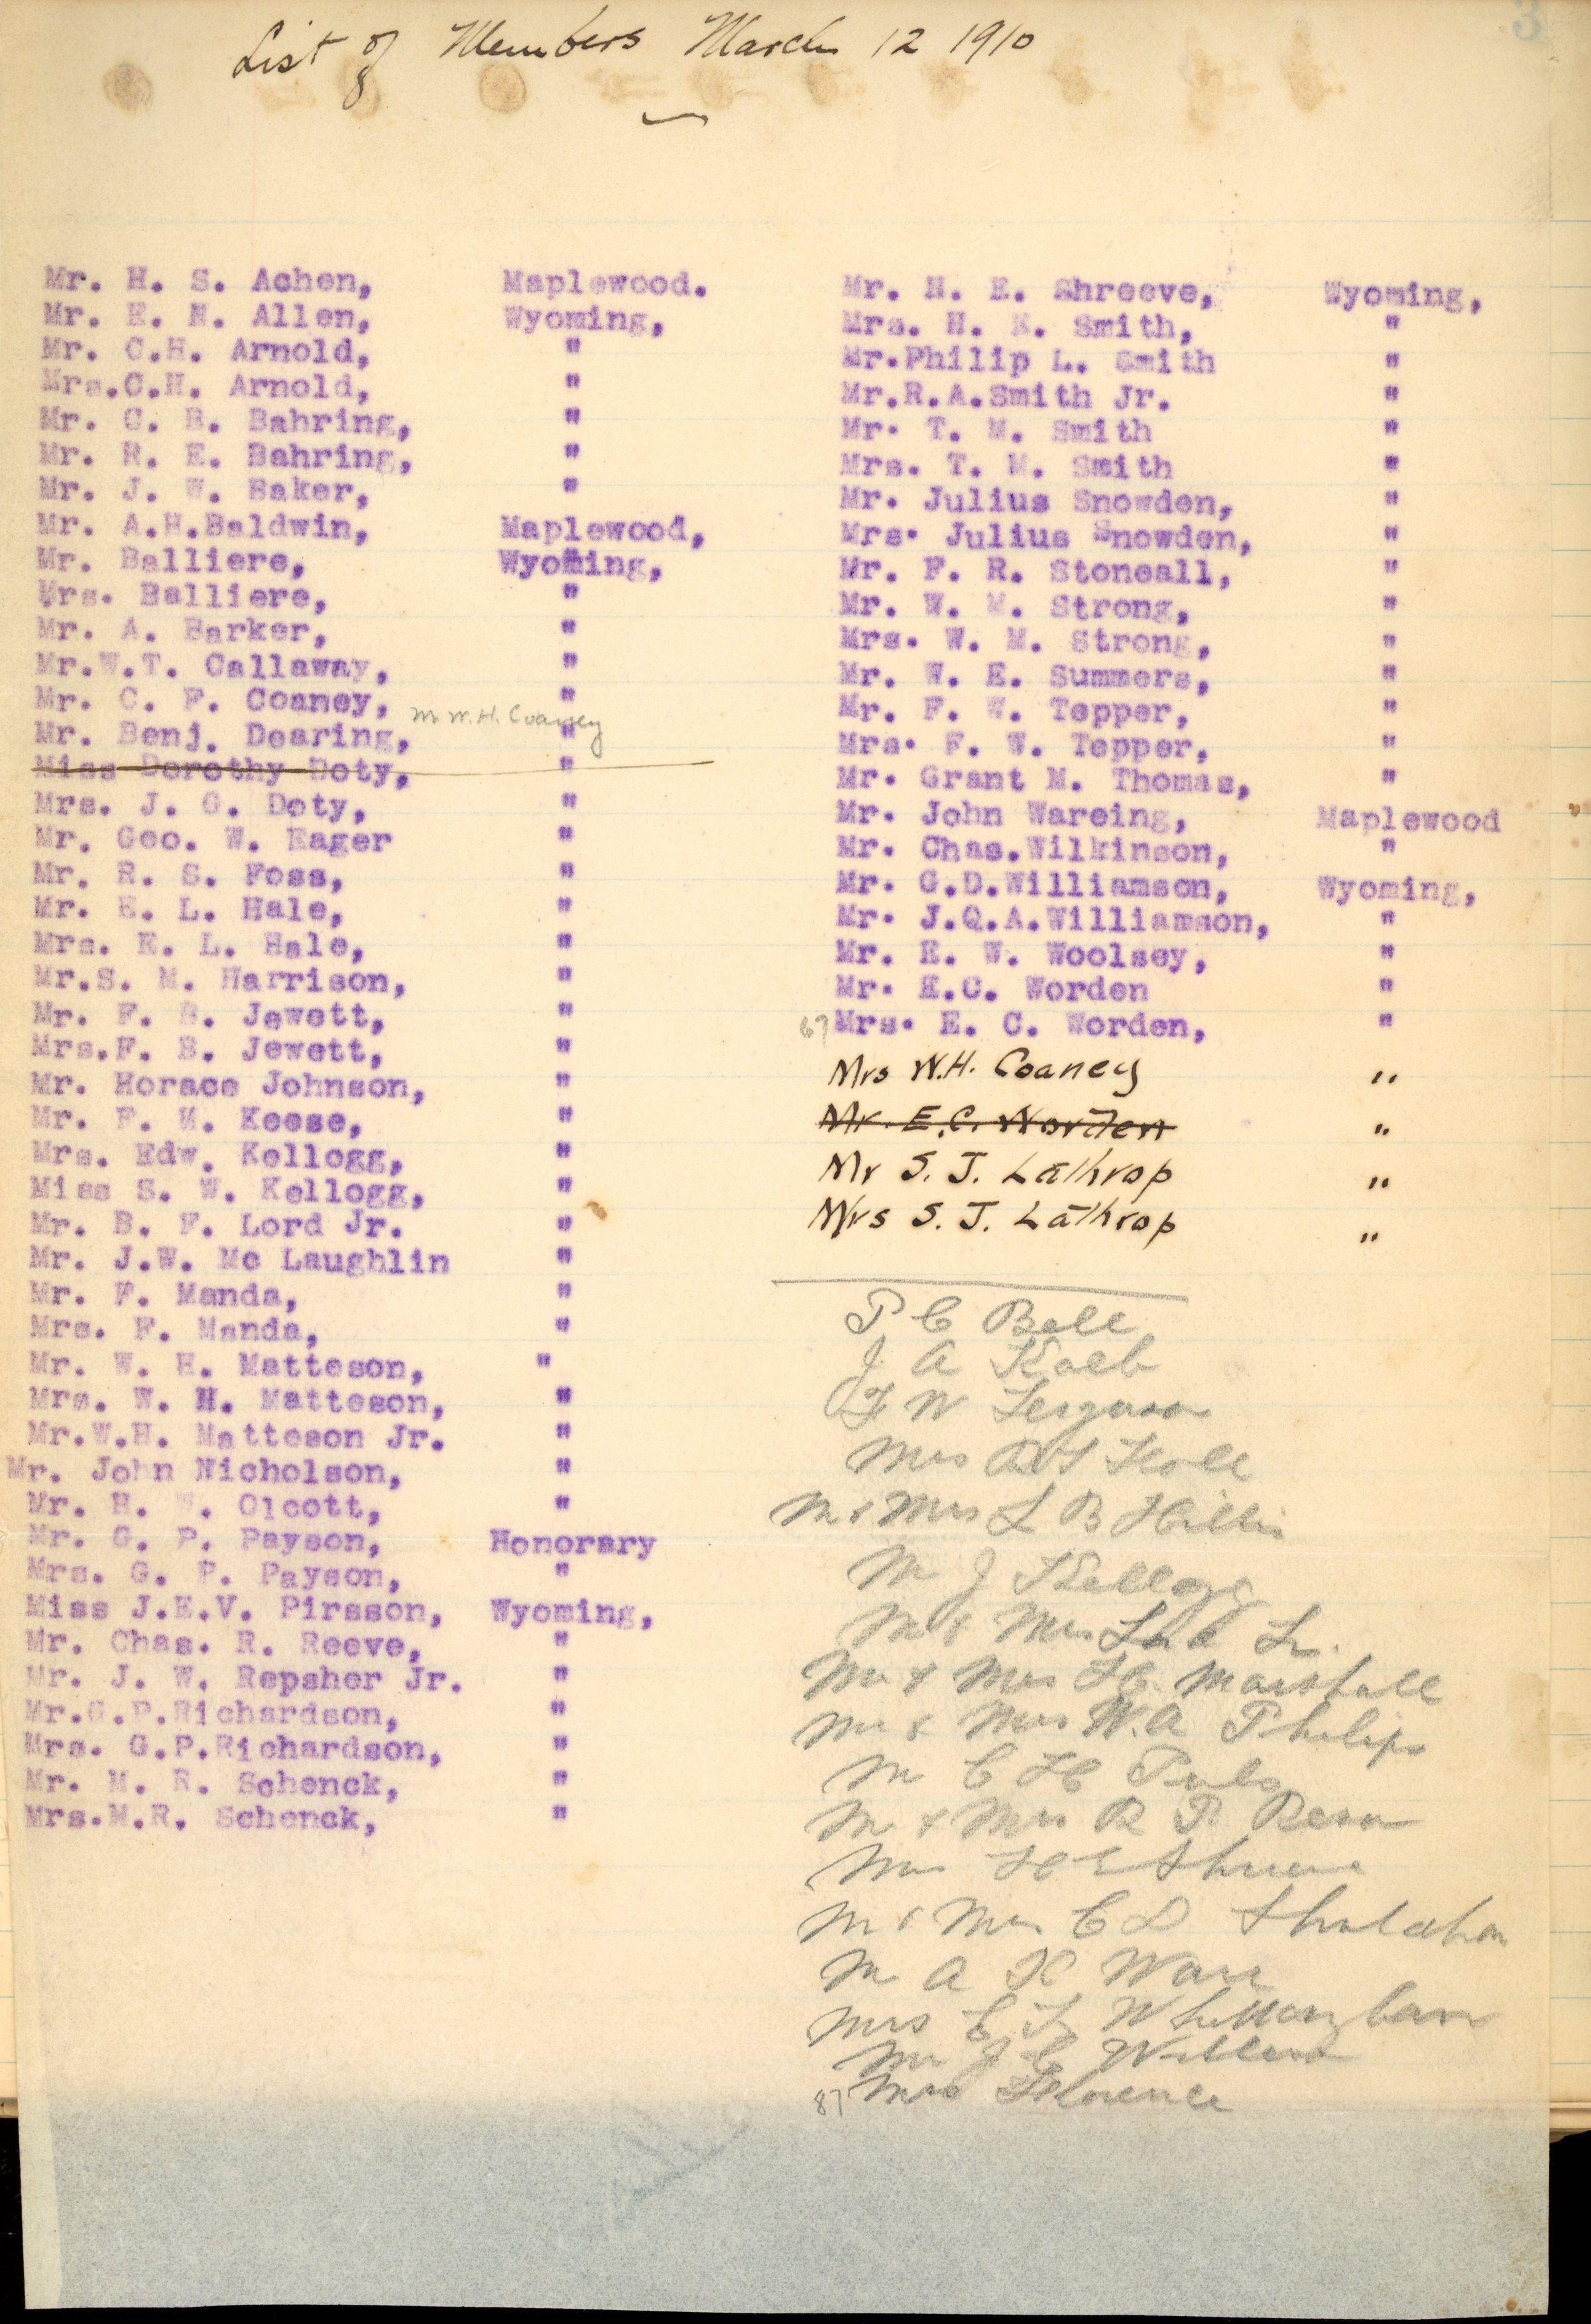 List of Members March 12 1910
Mr. H. S. Achen, Maplewood.
Mr. E. N. Allen, Wyoming,
Mr. C.H. Arnold, "
Mrs.C.H. Arnold, "
Mr. G. B. Bahring, "
Mr. R. E. Bahring, "
Mr. J. W. Baker, "
Mr. A.H.Baldwin, Maplewood,
Mr. Balliere, Wyoming,
Mrs. Balliere, "
Mr. A. Barker, "
Mr.W.T. Callaway, "
Mr. C. F. Coaney, "
Mr W.H. Coaney
Mr. Benj. Dearing, "
Miss Dorothy Doty, "
Mrs. J. G. Doty, "
Mr. Geo. W. Eager "
Mr. R. S. Foss, "
Mr. E. L. Hale, "
Mrs. E. L. Hale, "
Mr.S. M. Harrison, "
Mr. F. B. Jewett, "
Mrs.F. B. Jewett, "
Mr. Horace Johnson, "
Mr. F. M. Keese, "
Mrs. Edw. Kellogg, "
Miss S. W. Kellogg, "
Mr. B. F. Lord Jr. "
Mr. J.W. Mc Laughlin "
Mr. F. Manda, "
Mrs. F. Manda, "
Mr. W. H. Matteson, "
Mrs. W. H. Matteson, "
Mr.W.H. Matteson Jr. "
Mr. John Nicholson, "
Mr. H. W. Olcott, "
Mr. G. P. Payson, Honorary
Mrs. G. P. Payson, "
Miss J.E.V. Pirsson, Wyoming,
Mr. Chas. R. Reeve, "
Mr. J. W. Repsher Jr. "
Mr.G.P.Richardson, "
Mrs. G.P.Richardson, "
Mr. M. R. Schenck, "
Mrs.M.R. Schenck, "
Mr. H. E. Shreeve, Wyoming,
Mrs. H. E. Smith, "
Mr.Philip L. Smith "
Mr.R.A.Smith Jr. "
Mr. T. M. Smith "
Mrs. T. M. Smith "
Mr. Julius Snowden, "
Mrs. Julius Snowden, "
Mr. F. R. Stoneall, "
Mr. W. M. Strong, "
Mrs. W. M. Strong, "
Mr. W. E. Summers, "
Mr. F. W. Tepper, "
Mrs. F. W. Tepper, "
Mr. Grant M. Thomas, "
Mr. John Wareing, Maplewood
Mr. Chas.Wilkinson, "
Mr. G.D.Williamson, Wyoming,
Mr. J.Q.A.Williamson, "
Mr. E. W. Woolsey, "
Mr. E.C. Worden "
67 Mrs. E. C. Worden, "
Mrs W.H. Coaney "
Mr. E.C. Worden "
Mr S. J. Lathrop "
Mrs S. J. Lathrop "
P C Bell
J A Kolb
F W Ferguson
Mrs
Mr & Mrs L B Hillis
Mr J Kellogg
Mr & Mrs
Mr & Mrs H C Marshall
Mr & Mrs W.A Philips
Mr C H
Mr & Mrs R P
H E Shreeve
Mr & Mrs C D
Mr A H Ware
Mrs C F
Mr J C
87 Mrs Florence